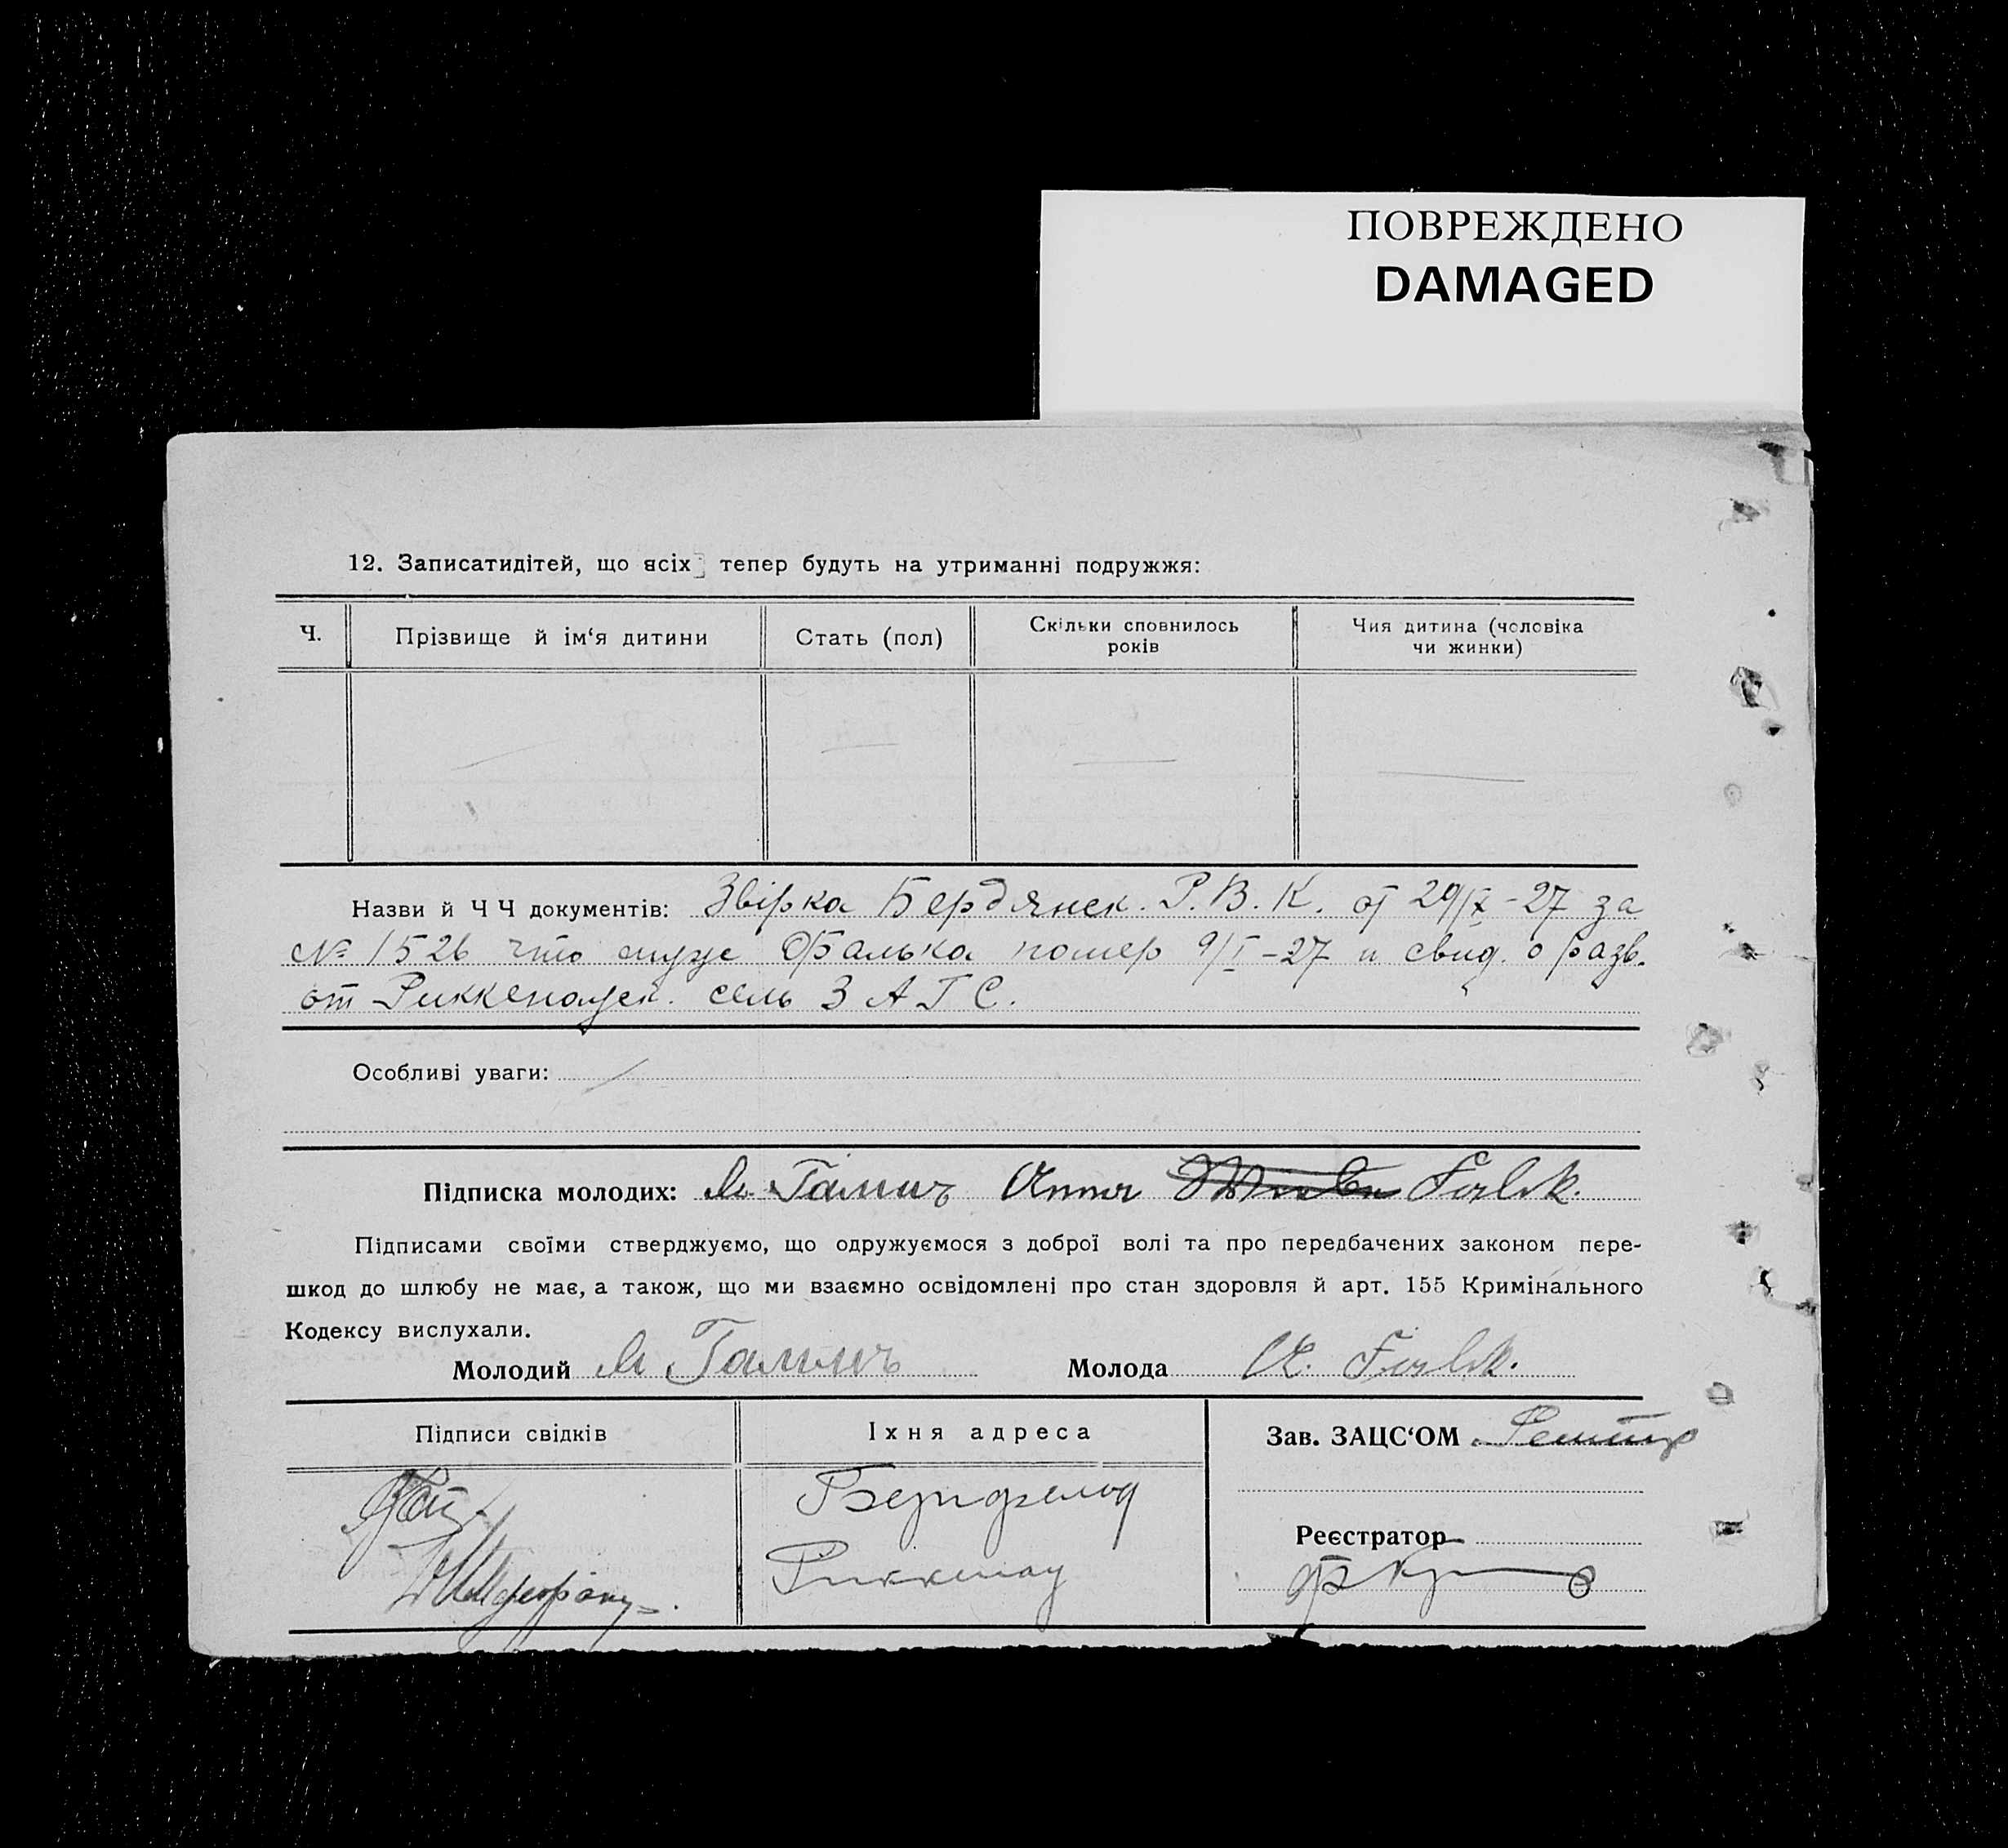 ПОВРЕЖДЕНО
DAMAGED
12. Записатидітей, що всіх тепер будуть на утриманні подружжя:
Ч.
Прізвище й ім‘я дитини
Стать (пол)
Скільки сповнилось
років
Чия дитина (чоловіка
чи жинки)
Назви й Ч Ч документів: Звірка Бердянск. Р. В. К. от 29/IX-27 за
№ 1526 что муж Фалька помер 9/I-27 и свид. о разв.
от Риккенауск. сель ЗАГС.
Особливі уваги:
Підписка молодих: М. Галичъ Anna Falk.
Підписами своїми стверджуємо, що одружуємося з доброї волі та про передбачених законом пере-
шкод до шлюбу не має, а також, що ми взаємно освідомлені про стан здоровля й арт. 155 Кримінального
Кодексу вислухали.
Молодий М Галичъ Молода A. Falk.
Підписи свідків
Іхня адреса
Зав. ЗАЦС‘ОМ
Реєстратор
Риккенау